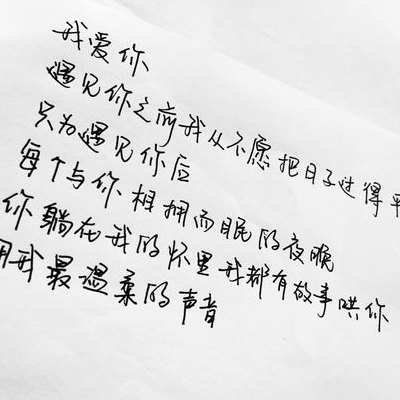 我爱你
遇见你之前我从不愿把日子过得平
只为遇见你后
每个与你相拥而眠的夜晚
你躺在我的怀里我都有故事哄你
用我最温柔的声音